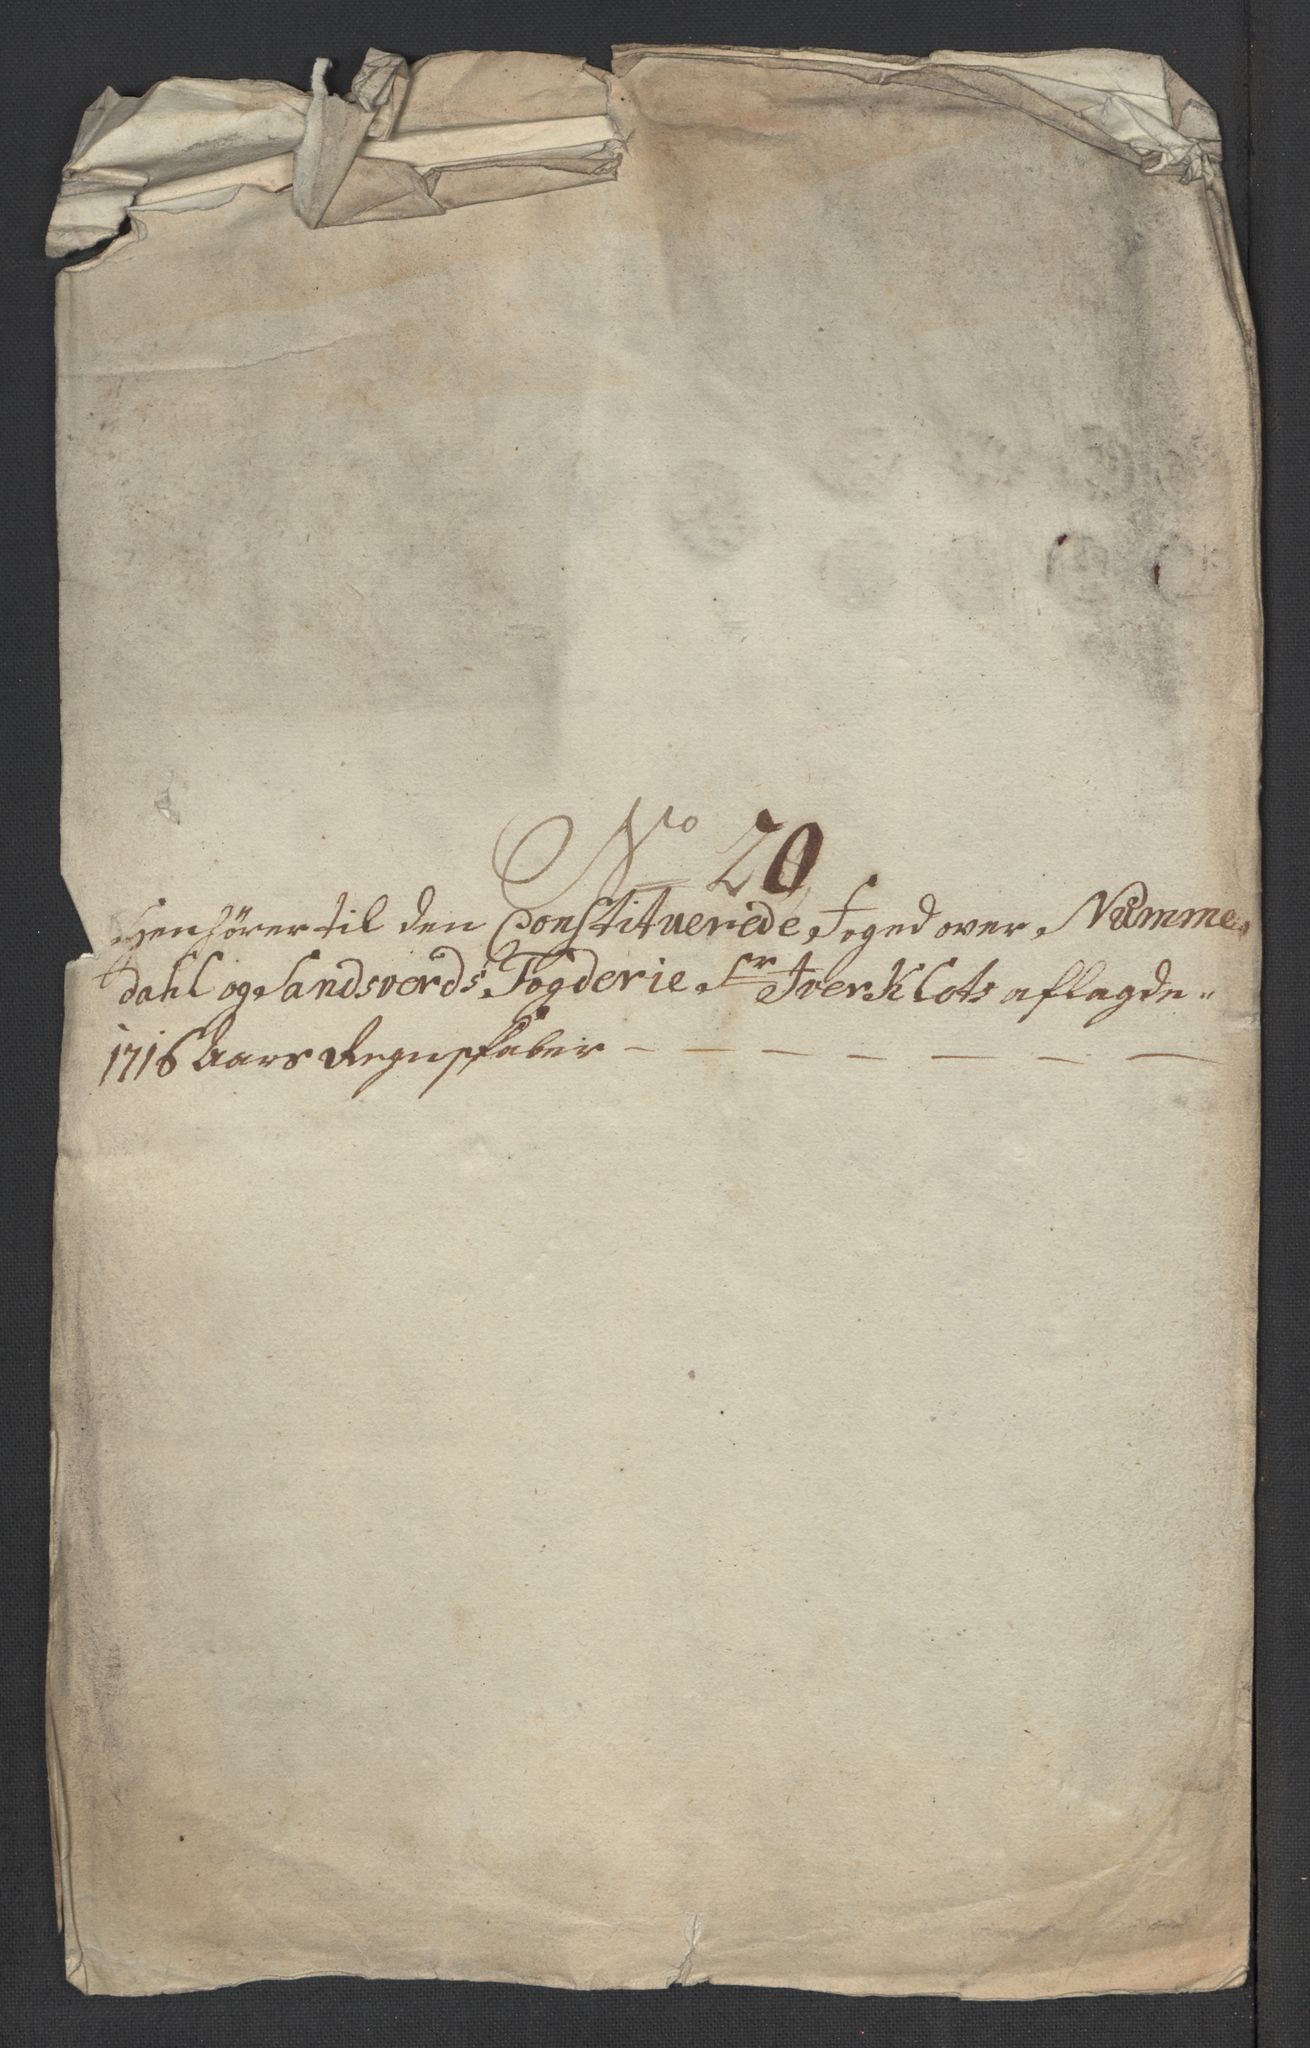 No 20
Henhörer til den Constituerede Foged over Numme-
dahl og Sandsverds Fogderie Sr Iver Klots aflagde-
1716 Aars Regnskaber - - - - - - -